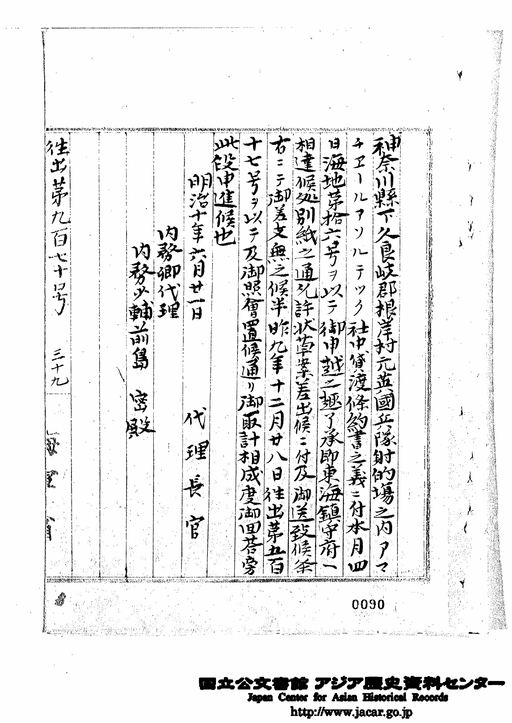 神奈川縣下久良岐郡根岸村元英國兵隊射的場之内アマ
チユールアソルテツク社中貸渡條約書之義ニ付本月四
日海地第拾六号ヲ以テ御申越之趣了承即東海鎮守府ヘ
相達候処別紙之通允許状草案差出候ニ付及御送致候条
右ニテ御差支無之候半昨九年十二月廿八日往出第五百
十七号ヲ以テ及御照會置候通リ御取計相成度御回答旁
此段申進候也
明治十年六月廿一日
代理長官
内務卿代理
内務少輔前島密殿
往出第九百七十号 三十九
海軍省
0090
国立公文書館 アジア歴史資料センター
Japan Center for Asian Historical Records
http://www.jacar.go.jp